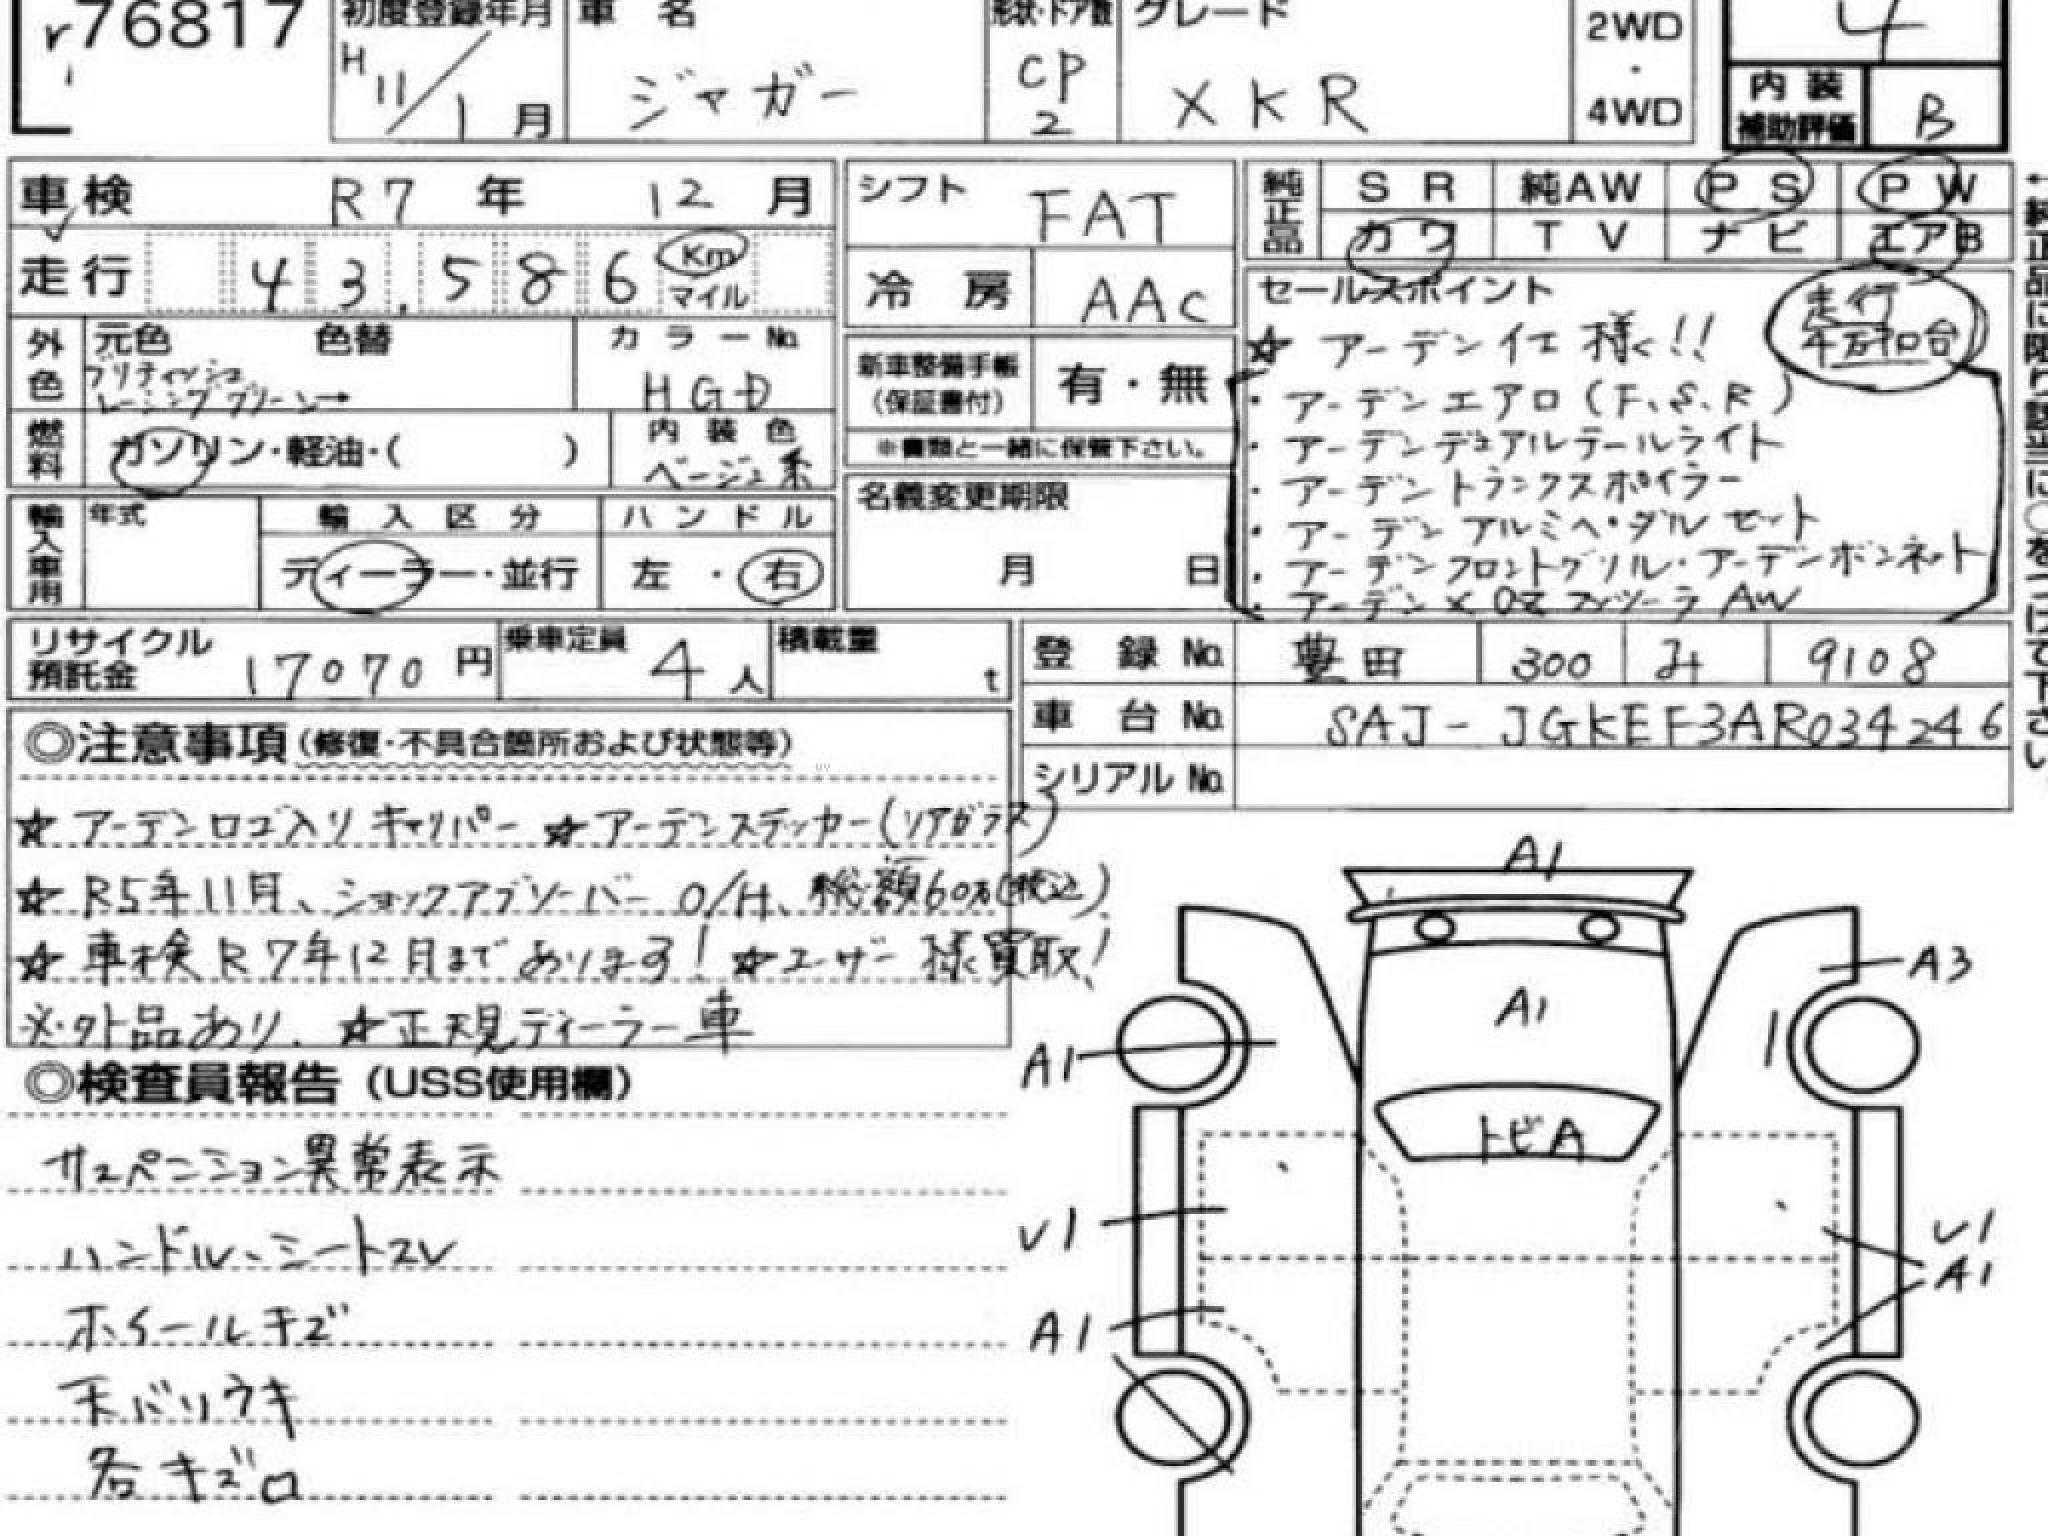 76817
初度登録年月 車名 形状・ドア数 グレード 2WD・4WD 4
H11/1月 ジャガー CP 2 XKR
内装補助評価 B
車検 R7年 12月
走行 43,586 Km マイル
外色 元色 色替 カラーNo.
ブリティッシュレーシンググリーン→ HGD
燃料 ガソリン・軽油・( ) 内装色 ベージュ系
輸入車用 年式 輸入区分 ハンドル
ディーラー・並行 左・右
シフト FAT
冷房 AAC
新車整備手帳(保証書付) 有・無
※書類と一緒に保管下さい。
名義変更期限
月 日
純正品 SR 純AW PS PW
カワ TV ナビ エアB
←純正品に限り該当に○をつけて下さい。
セールスポイント
走行4万キロ台
☆ アーデン仕様!!
・アーデンエアロ(F、S、R)
・アーデンデュアルテールライト
・アーデントランクスポイラー
・アーデンアルミペダルセット
・アーデンフロントグリル・アーデンボンネット
・アーデン×OZ AW
リサイクル預託金 17070円 乗車定員 4人 積載量 t
登録No. 豊田 300 み 9108
車台No. SAJ-JGKEF3AR034246
シリアルNo.
◎注意事項(修復・不具合箇所および状態等)
☆アーデンロゴ入りキャリパー ☆アーデンステッカー(リアガラス)
☆R5年11月、ショックアブソーバーO/H、総額60万(税込)
☆車検R7年12月まであります! ☆ユーザー様買取!
※外品あり. ☆正規ディーラー車
◎検査員報告(USS使用欄)
サスペンション異常表示
ハンドル、シートスレ
ホイールキズ
天バリウキ
各キズ
A1
A3
A1
A1
トビA
U1
U1
A1
A1